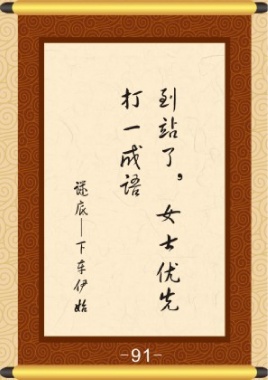 到站了，女士优先
打一成语
谜底—下车伊始
-91-